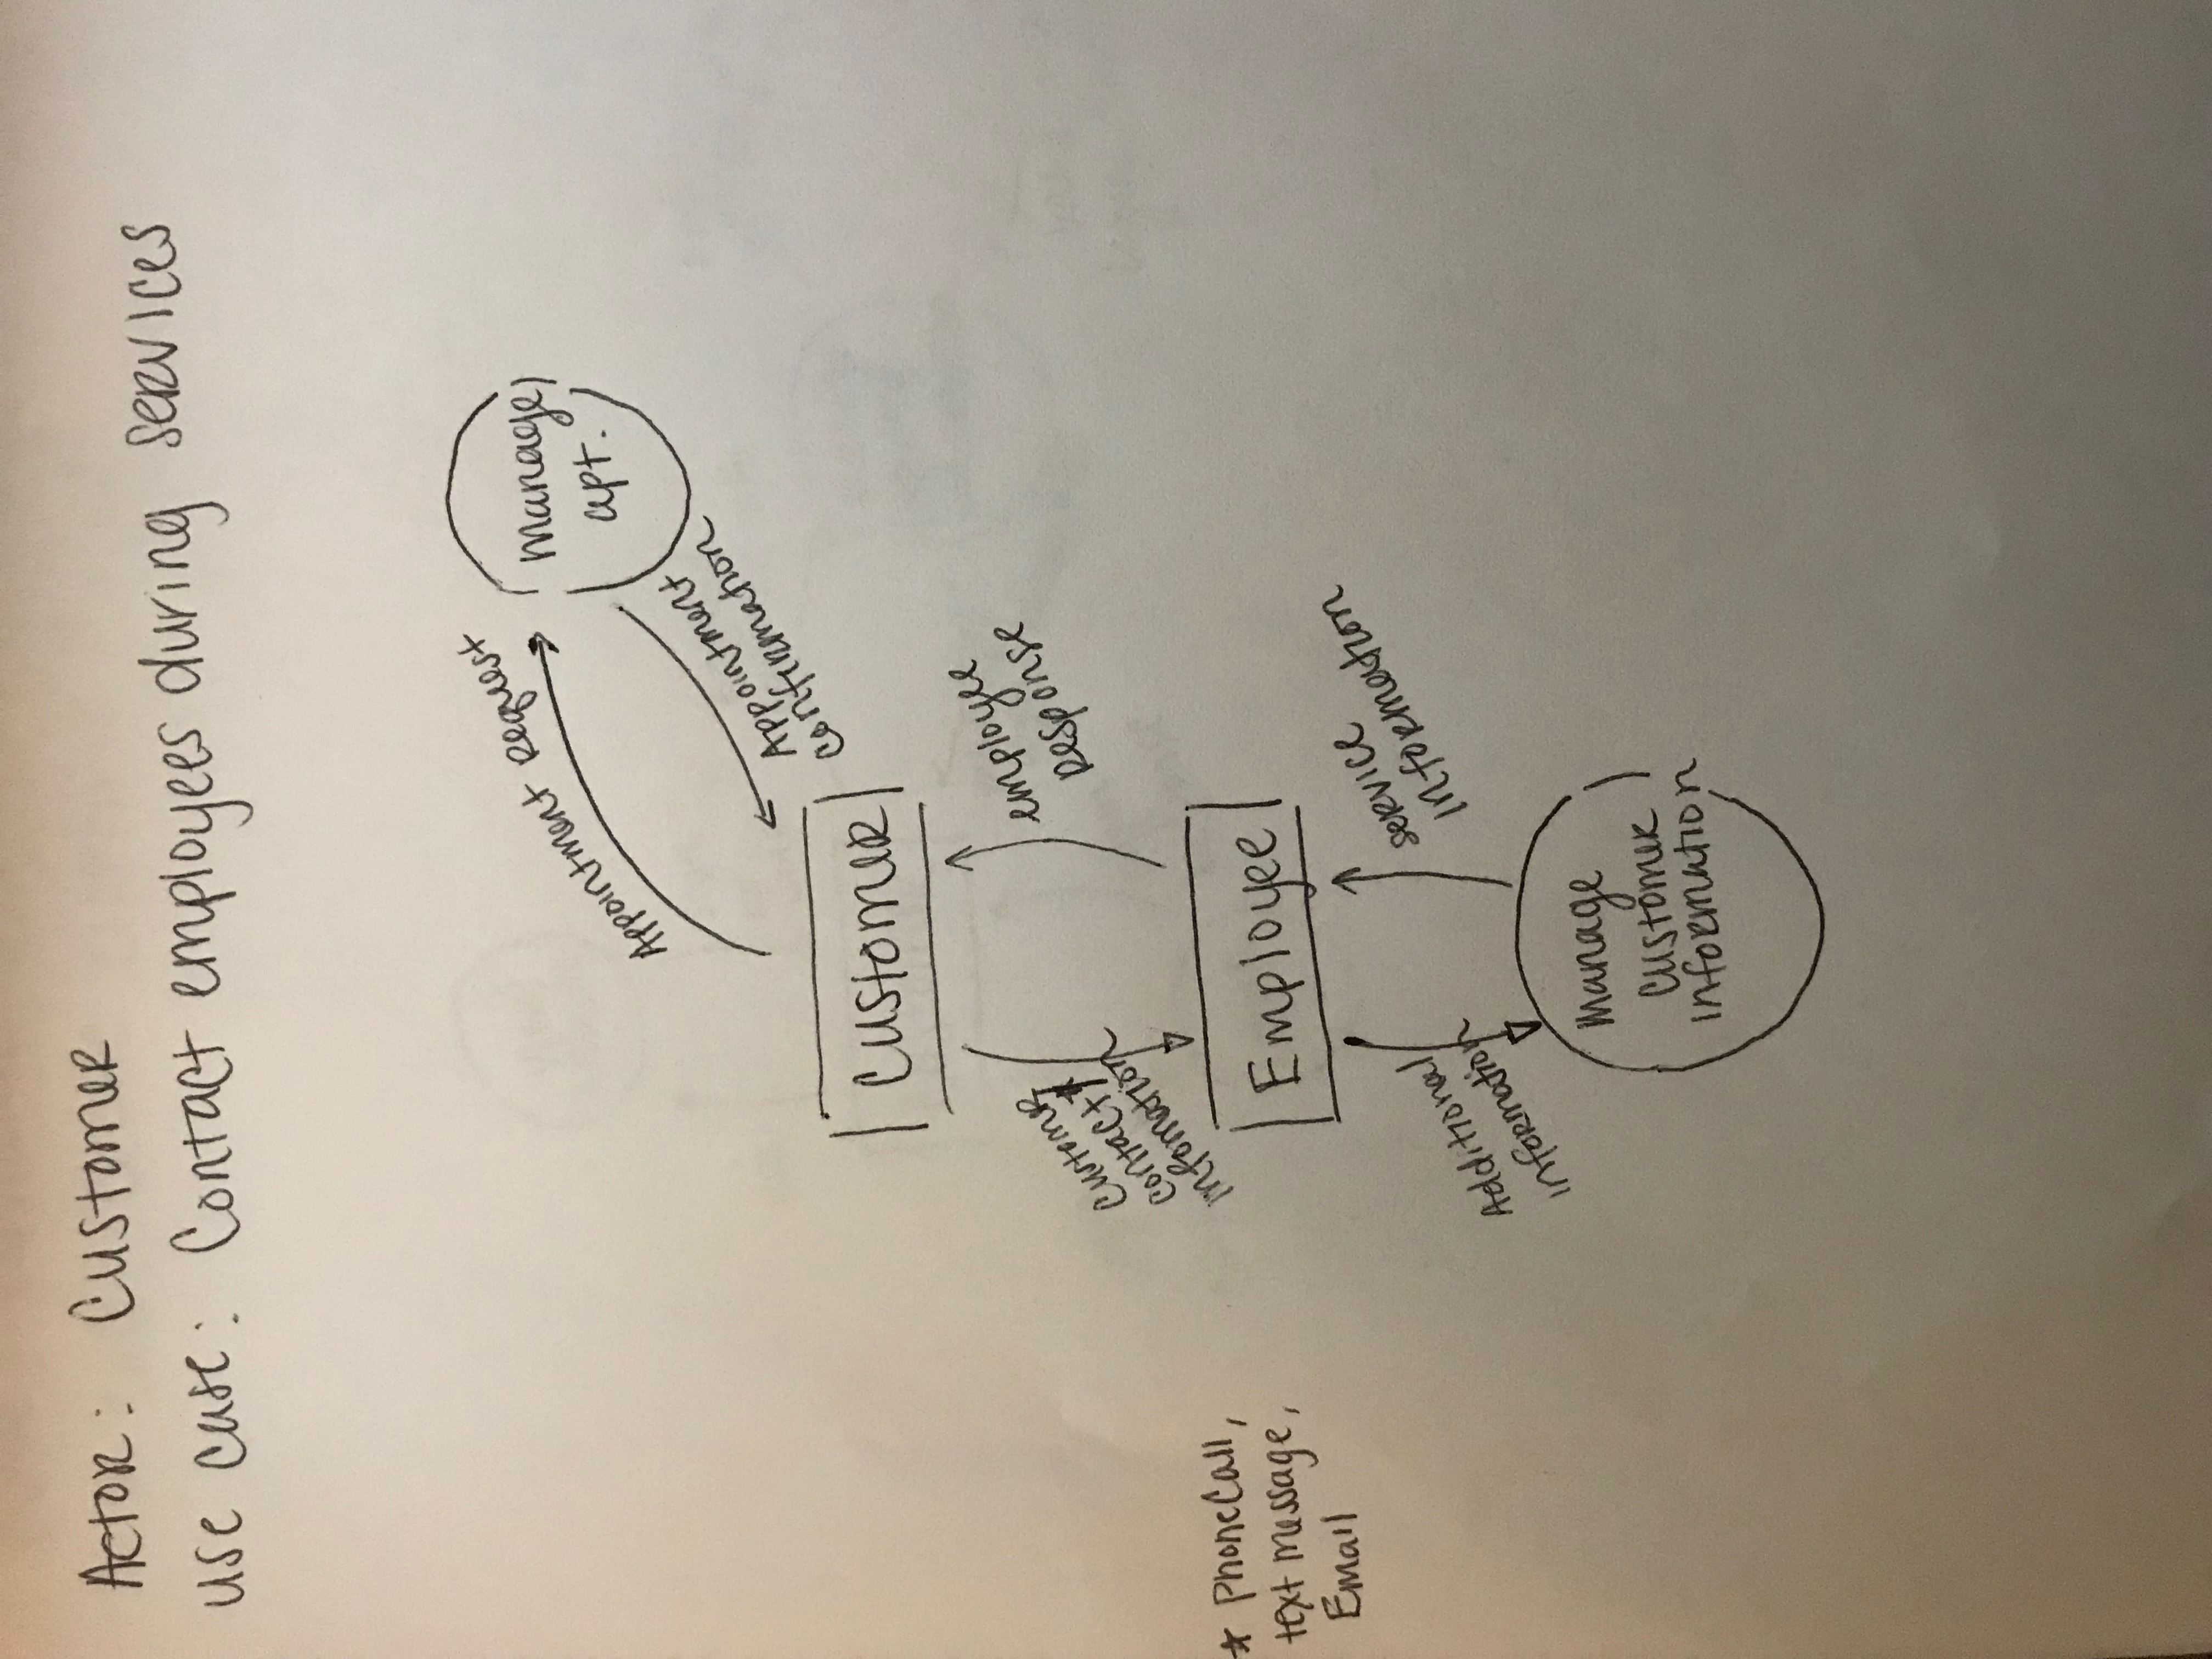 Actor: Customer
use case: Contact employees during services
Appointment Request
manage
apt.
Appointment
confirmation
Customer
Customer
contact *
infomation
employee
Response
* Phone Call,
text message,
Email
Employee
Additional
information
service
information
Manage
Customer
information